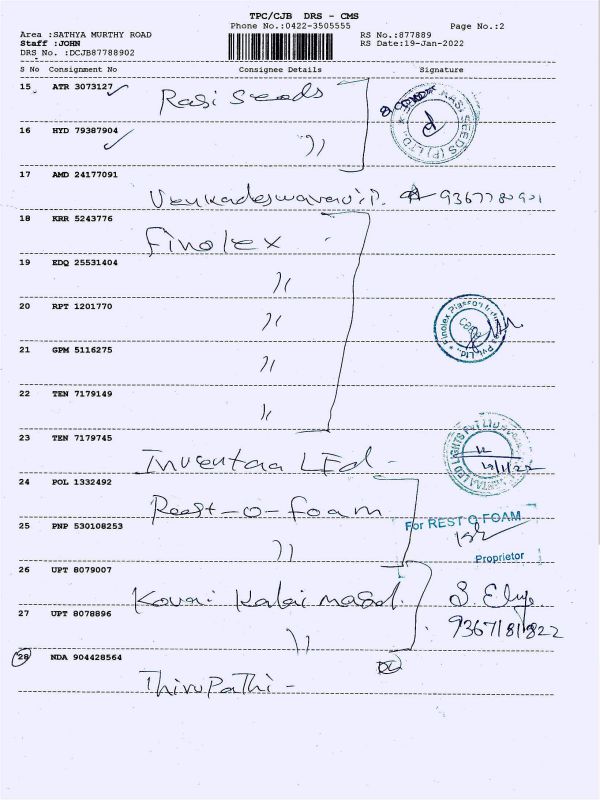 TPC/CJB DRS - CMS
Phone No.:0422-3505555
Page No.:2
Area :SATHYA MURTHY ROAD
Staff :JOHN
DRS No. :DCJB87788902
RS No.:877889
RS Date:19-Jan-2022
S No Consignment No Consignee Details Signature
15 ATR 3073127
Rasi Seeds
16 HYD 79387904
"
17 AMD 24177091
18 KRR 5243776
Finolex
19 EDQ 25531404
"
20 RPT 1201770
"
21 GPM 5116275
"
22 TEN 7179149
"
23 TEN 7179745
Inventaa LED -
24 POL 1332492
Rest-o-foam
25 PNP 530108253
For REST O FOAM
"
Proprietor
26 UPT 8079007
Kovai Kalai
27 UPT 8078896
9367181822
"
28 NDA 904428564
Thirupathi -